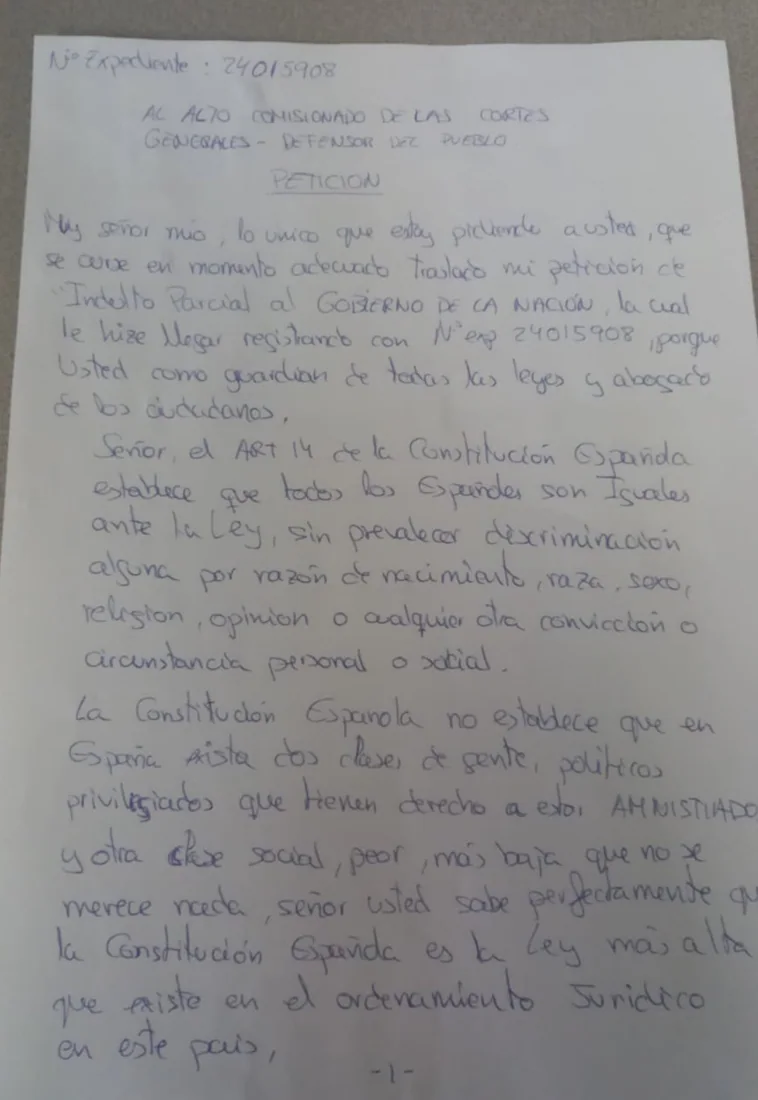 Nº Expediente : 24015908
AL ALTO COMISIONADO DE LAS CORTES
GENERALES - DEFENSOR DEL PUEBLO
PETICION
Muy señor mio, lo unico que estoy pidiendo a usted, que
se curse en momento adecuado traslado mi petición de
"Indulto Parcial al GOBIERNO DE LA NACIÓN, la cual
le hize llegar registrando con Nº exp 24015908, porque
Usted como guardian de todas las leyes y abogado
de los ciudadanos,
Señor, el ART 14 de la Constitución Española
establece que todos los Españoles son Iguales
ante la Ley, sin prevalecer discriminación
alguna por razón de nacimiento, raza, sexo,
religion, opinion o cualquier otra convicción o
circunstancia personal o social.
La Constitución Española no establece que en
España exista dos clases de gente, politicos
privilegiados que tienen derecho a estar AMNISTIADO
y otra clase social, peor, más baja que no se
merece nada, señor usted sabe perfectamente qu
la Constitución Española es la Ley más alta
que existe en el ordenamiento Juridico
en este pais,
-1-